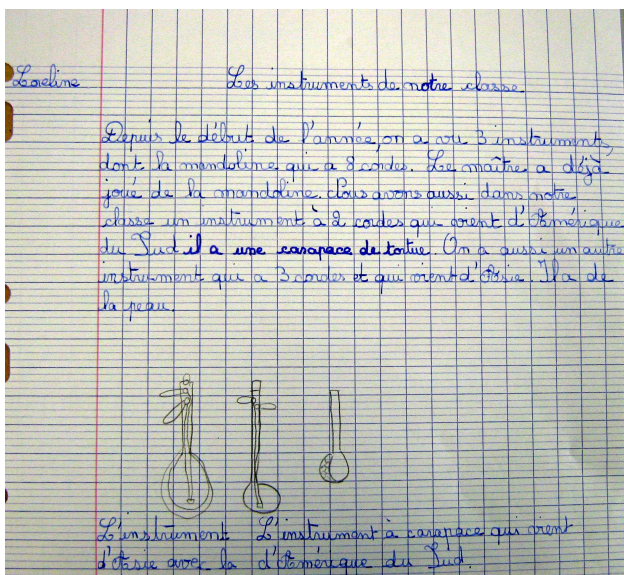 Loreline Les instruments de notre classe
Depuis le début de l'année, on a vu 3 instruments,
dont la mandoline qui a 8 cordes. Le maître a déjà
joué de la mandoline. Nous avons aussi dans notre
classe un instrument à 2 cordes qui vient d'Amérique
du Sud il a une carapace de tortue. On a aussi un autre
instrument qui a 3 cordes et qui vient d'Asie. Il a de
la peau.
L'instrument L'instrument à carapace qui vient
d'Asie avec la d'Amérique du Sud.